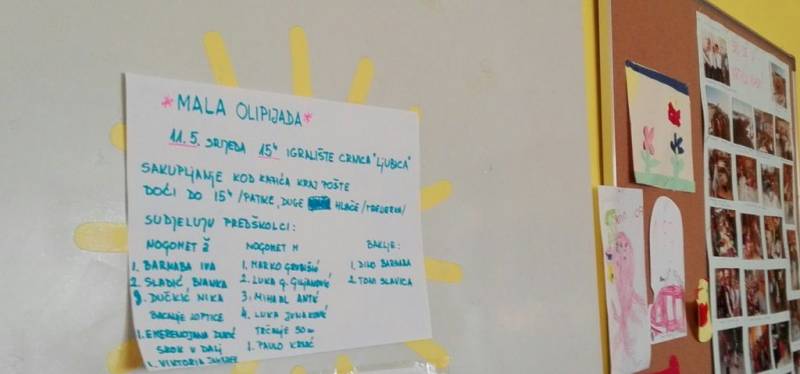 *MALA OLIPIJADA*
11.5. SRIJEDA 15h IGRALIŠTE CRNICA "LJUBICA"
SAKUPLJANJE KOD KAFIĆA KRAJ POŠTE
DOĆI DO 15h /PATIKE, DUGE HLAČE/TRENERKA/
SUDJELUJU PREDŠKOLCI:
NOGOMET Ž
1. BARNABA IVA
2. SLADIĆ BIANKA
3. DUČKIĆ NIKA
BACANJE LOPTICE
1. DUJIĆ
SKOK U DALJ
1. VIKTORIA
NOGOMET M
1. MARKO GRUBIŠIĆ
2. LUKA G. GULJANOVIĆ
3. MIHAEL ANTIĆ
4. LUKA JUNAKOVIĆ
TRČANJE 50m
1. PAULO
BAKLJE:
1. DINO BARNABA
2. TONI SLAVICA